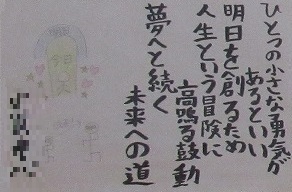 ひとつの小さな勇気が
あるといい
明日を創るため
人生という冒険に
高鳴る鼓動
夢へと続く
未来への道